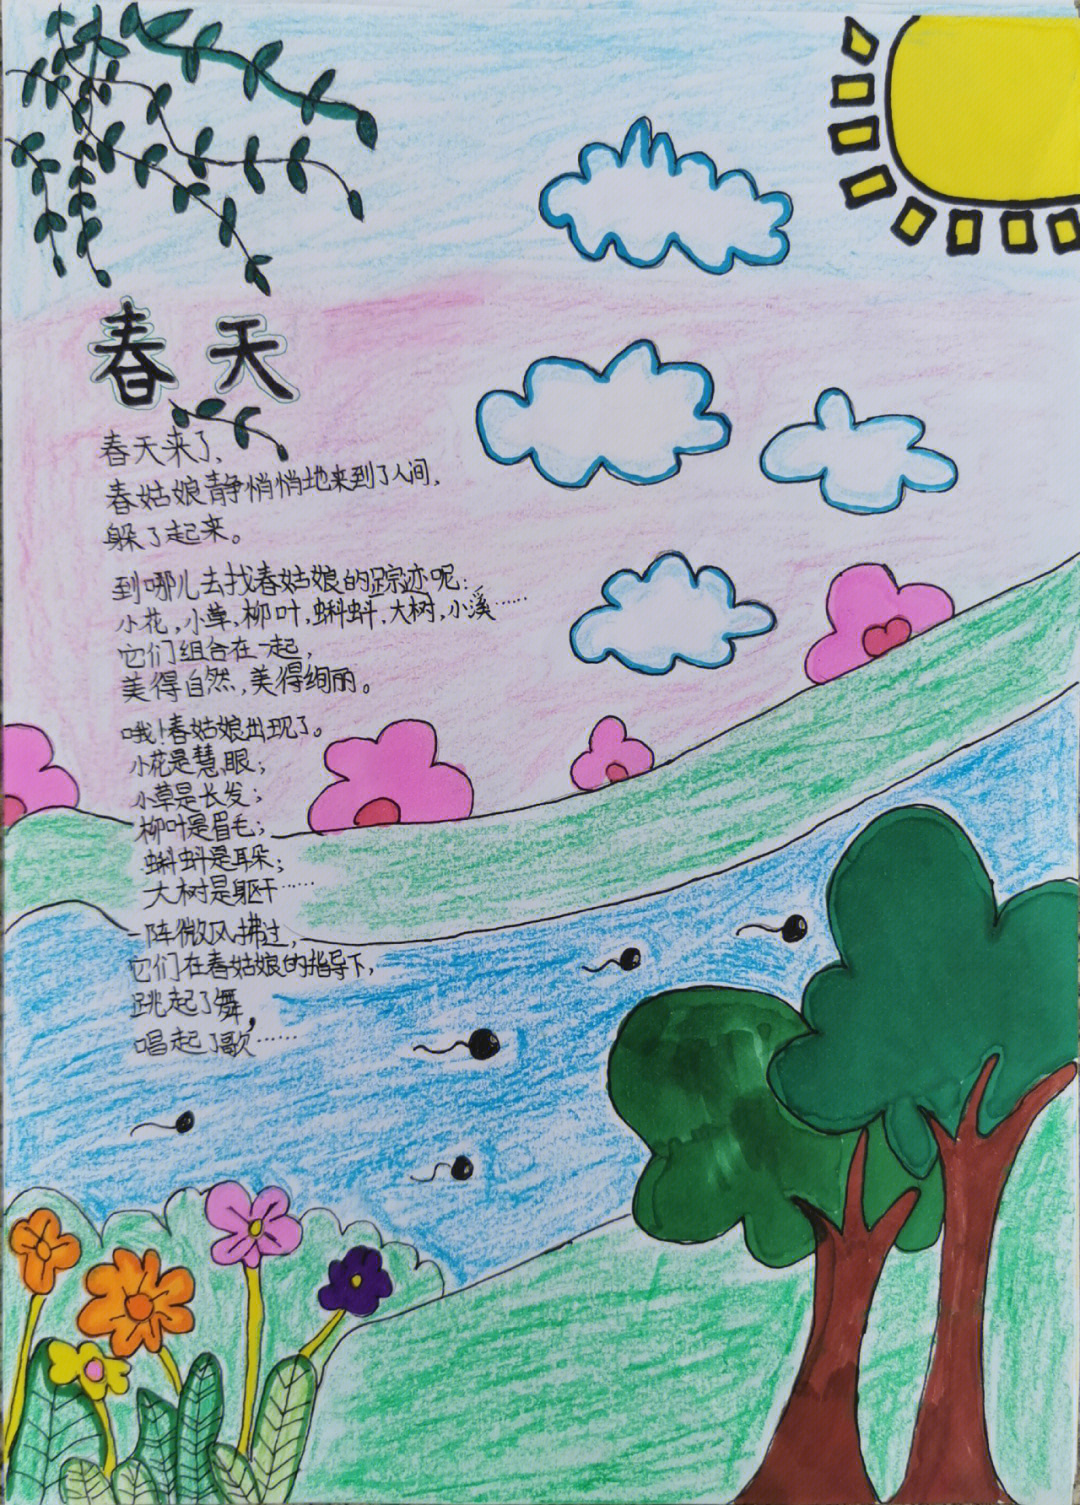 春天
春天来了,
春姑娘静悄悄地来到了人间,
躲了起来。
到哪儿去找春姑娘的踪迹呢:
小花,小草,柳叶,蝌蚪,大树,小溪……
它们组合在一起,
美得自然,美得绚丽。
哦!春姑娘出现了。
小花是慧眼;
小草是长发;
柳叶是眉毛;
蝌蚪是耳朵;
大树是躯干……
一阵微风拂过,
它们在春姑娘的指导下,
跳起了舞,
唱起了歌……